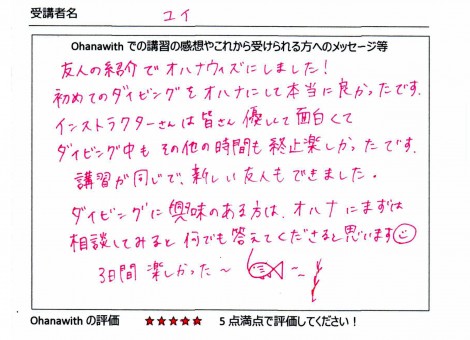 受講者名 ユイ
Ohanawith での講習の感想やこれから受けられる方へのメッセージ等
友人の紹介でオハナウィズにしました!
初めてのダイビングをオハナにして本当に良かったです。
インストラクターさんは皆さん優しくて面白くて
ダイビング中もその他の時間も終止楽しかったです。
講習が同じで、新しい友人もできました。
ダイビングに興味のある方は、オハナにまずは
相談してみると何でも答えてくださると思います
3日間楽しかった〜
Ohanawith の評価 ★★★★★ 5 点満点で評価してください!